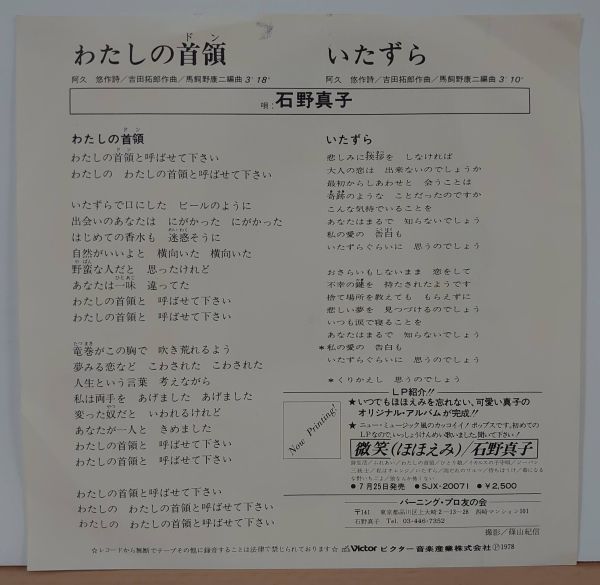 わたしの首領　いたずら
ドン
阿久　悠作詩／吉田拓郎作曲／馬飼野康二編曲 3′18″　阿久　悠作詩／吉田拓郎作曲／馬飼野康二編曲 3′10″
唄：石野真子
わたしの首領
ドン
わたしの首領と呼ばせて下さい
わたしの　わたしの首領と呼ばせて下さい
いたずらで口にした　ビールのように
出会いのあなたは　にがかった　にがかった
はじめての香水も　迷惑そうに
自然がいいよと　横向いた　横向いた
野蛮な人だと　思ったけれど
あなたは一味　違ってた
わたしの首領と　呼ばせて下さい
わたしの首領と　呼ばせて下さい
竜巻がこの胸で　吹き荒れるよう
夢みる恋など　こわされた　こわされた
人生という言葉　考えながら
私は両手を　あげました　あげました
変った奴だと　いわれるけれど
あなたが一人と　きめました
わたしの首領と　呼ばせて下さい
わたしの首領と　呼ばせて下さい
わたしの首領と　呼ばせて下さい
わたしの　わたしの首領と　呼ばせて下さい
いたずら
悲しみに挨拶を　しなければ
大人の恋は　出来ないのでしょうか
最初からしあわせと　会うことは
奇跡のような　ことだったのですか
こんな気持でいることを
あなたはまるで　知らないでしょう
私の愛の　告白も
いたずらぐらいに　思うのでしょう
おさらいもしないまま　恋をして
不幸の鍵を　持たされたようです
捨て場所を教えても　もらえずに
悲しい夢を　見つづけるのでしょう
いつも涙で寝ることを
あなたはまるで　知らないでしょう
＊私の愛の　告白も
いたずらぐらいに　思うのでしょう
＊くりかえし　思うのでしょう
LP紹介!!
Now Printing!
★いつでもほほえみを忘れない、可愛い真子の
オリジナル・アルバムが完成!!
★ニュー・ミュージック風のカッコイイ！ポップスです。初めての
LPなので、いっしょうけんめい歌いました。聞いて下さい！
微笑(ほほえみ)／石野真子
●7月25日発売　●SJX-20071　●￥2,500
バーニング・プロ友の会
〒141　東京都品川区上大崎2－13－28　西崎マンション101
石野真子　Tel. 03-446-7352
撮影／篠山紀信
☆レコードから無断でテープその他に録音することは法律で禁じられております☆　Victor　ビクター音楽産業株式会社　Ⓟ1978